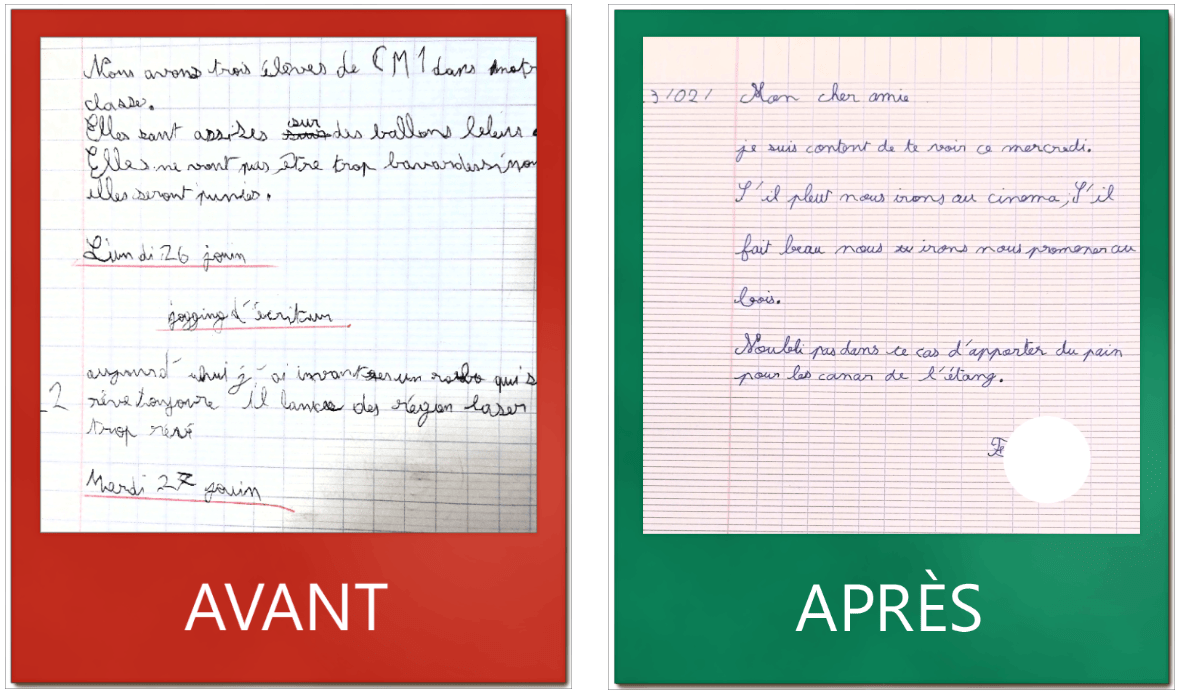 Nous avons trois élèves de CM1 dans notr
classe.
Elles sont assises sur des ballons
Elles ne vont pas être trop bavardes sinon
elles seront punies.
Lundi 26 jouin
jogging d'écriture
2
rêve toujours Il lance des région laser
trop rêvé
Mardi 27 jouin
AVANT
3/02/ Mon cher amie
je suis content de te voir ce mercredi.
S'il pleut nous irons au cinema, S'il
fait beau nous irons nous promener au
bois.
Noubli pas dans ce cas d'apporter du pain
pour les canar de l'étang.
APRÈS